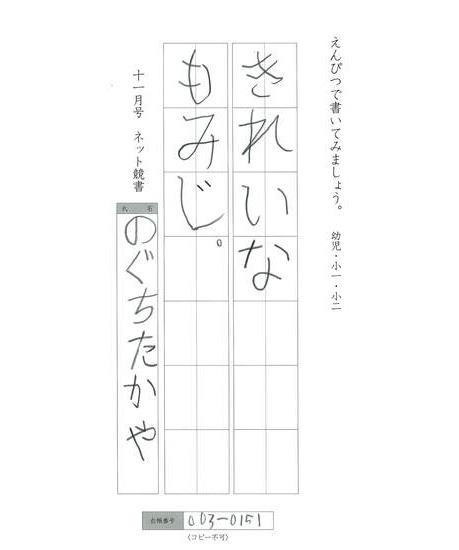 えんぴつで書いてみましょう。　幼児・小一・小二
きれいな
もみじ。
十一月号　ネット競書
氏名
のぐちたかや
会員番号
003-0151
〈コピー不可〉